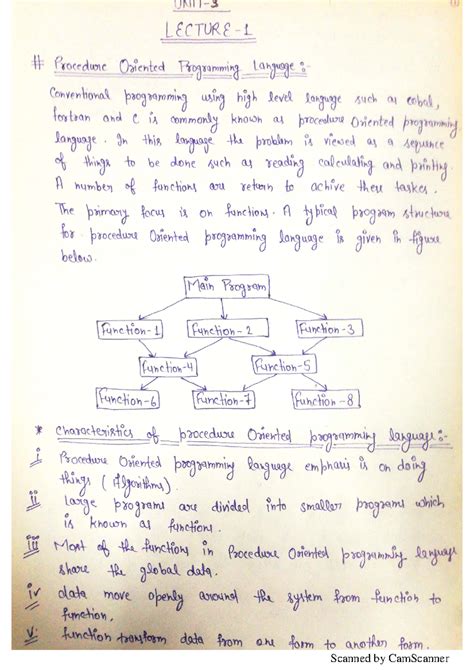 UNIT-3
LECTURE-1
# Procedure Oriented Programming Language :-
Conventional programming using high level languge such as cobal,
fortran and C is commonly known as procedure Oriented programming
language. In this language the problem is viewed as a sequence
of things to be done such as reading calculating and printing.
A number of functions are return to achive these taskes.
The primary focus is on functions. A typical program structure
for procedure Oriented programming language is given in figure
below.
Main Program
Function-1 Function-2 Function-3
Function-4 Function-5
Function-6 Function-7 Function-8
* Characteristics of procedure Oriented programming language:-
i Procedure Oriented programming language emphasis is on doing
things (Algorithms).
ii large programs are divided into smaller programs which
is known as functions.
iii Most of the functions in Procedure Oriented programming language
share the global data.
iv data move openly around the system from function to
function.
v. function transform data from one form to another form.
Scanned by CamScanner